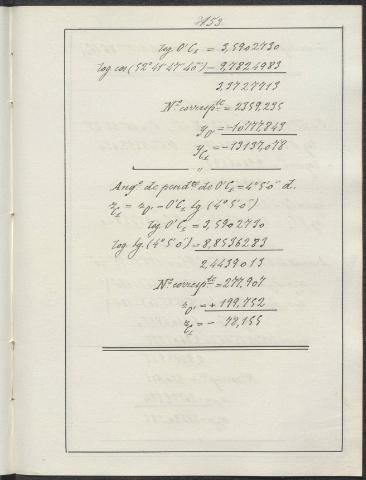 153.
log O'C₂ = 3,5902730
log cos (52° 41' 47' 40") = 9,7824983
3,3727713
Nº correspᵗᵉ = 2359,235
y₀' = -10777,843
y C₂ = -13137,078
"
Angº de pendᵗᵉ de O'C₂ = 4° 5' 0" d.
z₂ = z₀' - O'C₂ tg. (4° 5' 0")
log O'C₂ = 3,5902730
log tg. (4° 5' 0") = 8,8536283
2,4439013
Nº correspᵗᵉ = 277,907
z₀' = + 199,752
z₂ = - 78,155